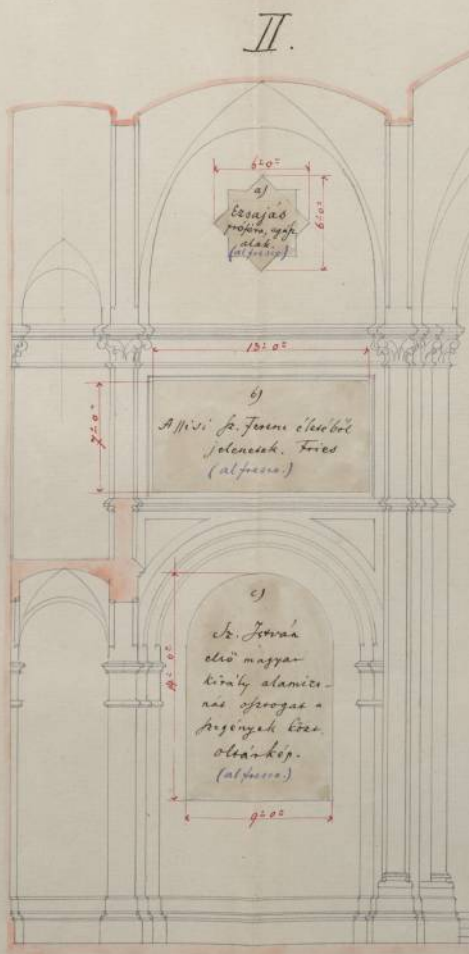 II.
6'-0"
a)
Ezsajás
próféta, egész
alak.
(al fresco)
6'-0"
13'-0"
7'-0"
b)
Assisi Sz. Ferenc életéből
jelenetek. Fries
(al fresco.)
c)
Sz. István
első magyar
király alamizs-
nát osztogat a
szegények közt.
oltárkép.
(al fresco.)
9'-0"